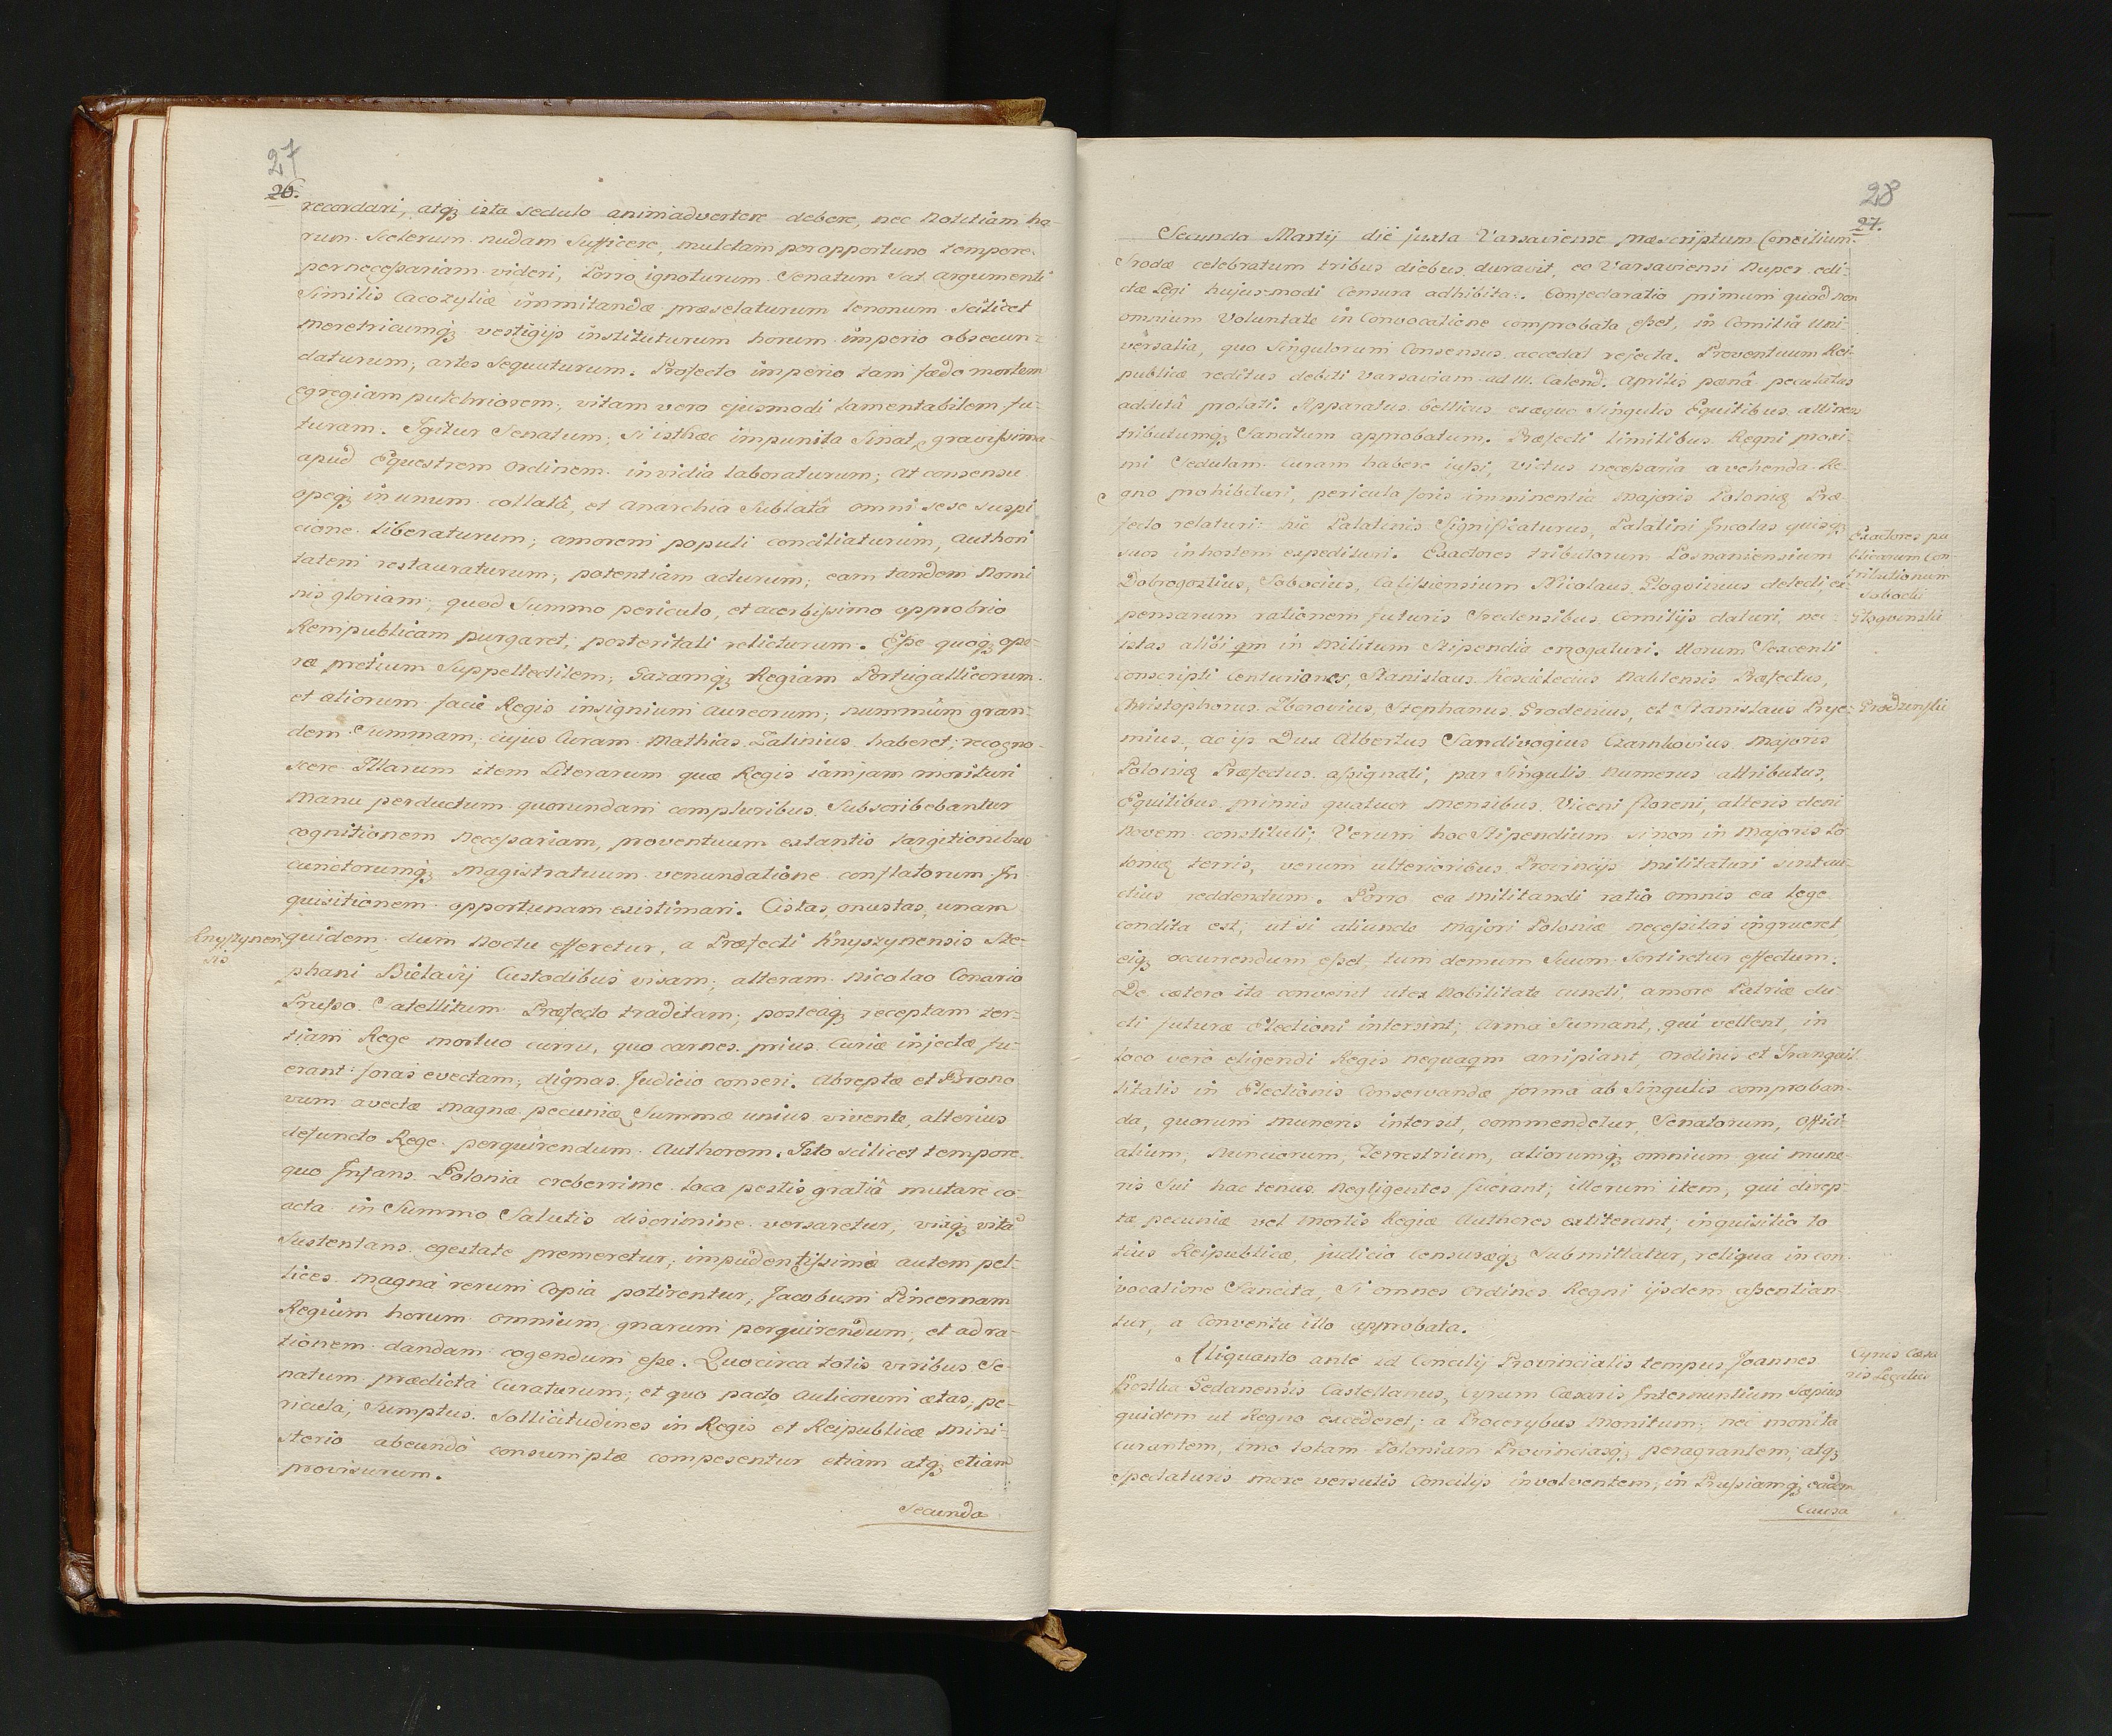 27
26.
recordari, atq; ista sedulo animadvertere debere, nec Notitiam ha-
rum Scelerum nudam Sufficere, mulctam peropportuno tempore
pernecessariam videri, Porro ignoturum Senatum Sat argumenti
Similis Cacozyliæ immitandæ præselaturum lenonum Scilicet
meretricumq; vestigijs instituturum horum imperio obsecun-
daturum; artes Sequuturum. Profecto imperio tam fædo mortem
egregiam pulchriorem, vitam vero ejusmodi lamentabilem fu-
turam. Igitur Senatum, Si isthæc impunita Sinat, gravissima
apud Equestrem Ordinem invidia laboraturum; at consensu
opeq; in unum collatâ, et anarchia Sublatâ omni sese suspi
cione liberaturum; amorem populi conciliaturum, Authori
tatem restauraturum, potentiam acturum; eam tandem Nomi
nis gloriam, quod Summo periculo, et acerbissimo opprobrio
Rempublicam purgaret, posteritati relicturum. Esse quoq; ope-
ræ pretium Suppellectilem, Gazamq; Regiam Portugallicorum
et aliorum facie Regis insignium aureorum, nummûm gran-
dem Summam, cujus Curam Mathias Zalinius haberet; recogno-
scere Illarum item Literarum quæ Regis iamjam morituri
manu perductum quorundam compluribus Subscribebantur
cognitionem Necessariam, proventuum extantis largitionibus
cunctorumq; Magistratuum venundatione conflatorum In
quisitionem opportunam existimari. Cistas onustas, unam
Knyszynen
sis
quidem dum Noctu efferetur, a Præfecti Knyszynensis Ste-
phani Bielavij Custodibus visam, alteram Nicolao Conario
Prusso Satellitum Præfecto traditam, posteaq; receptam ter-
tiam Rege mortuo curru, quo carnes prius Curiæ injectæ fu-
erant foras evectam, dignas Judicio conseri. Abreptæ et Brono
vum avectæ magnæ pecuniæ Summæ unius vivente, alterius
defuncto Rege perquirendum Authorem. Isto scilicet tempore
quo Infans Polonia creberrime loca pestis gratiâ mutare co-
acta in Summo Salutis discrimine versaretur, vixq; vitâ
Sustentans egestate premeretur; impudentissimè autem pel-
lices magnâ rerum Copia potirentur, Jacobum Pincernam
Regium horum omnium gnarum perquirendum, et ad ra-
tionem dandam cogendum esse. Quocirca totis viribus Se-
natum prædicta Curaturum; et quo pacto Aulicorum ætas, pe-
ricula, Sumptus Sollicitudines in Regis et Reipublicæ mini-
sterio abeundo consumptæ compesentur etiam atq; etiam
provisurum.
Secunda
28
27.
Secunda Martij die juxta Varsaviense præscriptum Concilium
Srodæ celebratum tribus diebus duravit, eo Varsaviensi Nuper edi-
ctæ Legi hujusmodi Censura adhibita. Confederatio primum quod non
omnium Voluntate in Convocatione comprobata esset, in Comitia Uni-
versalia, quo Singulorum Consensus accedat rejecta. Proventuum Rei-
publicæ reditus debiti Varsaviam ad III. Calend. Aprilis pænâ peculatus
additâ prolati. Apparatus bellicus exæquo Singulis Equitibus attinens
tributumq; Sancitum approbatum. Præfecti limitibus Regni proxi-
mi Sedulam Curam habere iussi, victus necessaria avehenda Re-
gno prohibituri, pericula foris imminentia Majoris Poloniæ Præ-
fecto relaturi: hic Palatinis Significaturus, Palatini Incolas quisq;
suos in hostem expedituri. Exactores tributorum Posnaniensium
Dobrogostius, Sobocius, Calissiensium Nicolaus Glogovius delecti, ex-
pensarum rationem futuris Sredensibus Comitijs daturi, nec
istas alibi qm in Militum Stipendia erogaturi. Horum Sexcenti
conscripti Centuriones, Stanislaus Koscielecius Naklensis Præfectus,
Christophorus Zborovius, Stephanus Grodenius, et Stanislaus Prye-
mius, ac ijs Dux Albertus Sandivogius Czarnkovius Majoris
Poloniæ Præfectus assignati, par Singulis Numerus attributus,
Equitibus primis quatuor mensibus Viceni floreni, alteris deni
Novem constituti; Verum hoc Stipendium si non in Majoris Po-
loniæ terris, verum ulterioribus Provincijs militaturi sint au-
ctius reddendum. Porro ea militandi ratio omnis ea lege
condita est, ut si aliunde Majori Poloniæ necessitas ingrueret
eiq; occurrendum esset tum demum Suum Sortiretur effectum.
De cætero ita convenit ut ex Nobilitate cuncti, amore Patriæ du-
cti futuræ Electioni intersint; Arma Sumant, qui vellent, in
loco verò eligendi Regis nequaqm arripiant, ordinis et Tranquil
litatis in Electionis Conservandæ forma ab Singulis comproban-
da, quorum muneris intersit, commendetur, Senatorum, Offici-
alium, Nunciorum, Terrestrium, aliorumq; omnium qui mune-
ris Sui hac tenus Negligentes fuerant; illorum item, qui direp-
tæ pecuniæ vel mortis Regiæ Authores extiterant; inquisitio to
tius Reipublicæ, judicio Censuræq; Submittatur, reliqua in con-
vocatione Sancita, Si omnes Ordines Regni ijsdem assentian-
tur, a Conventu illo approbata.
Aliquanto ante id Concilij Provincialis tempus, Joannes
Kostka Gedanensis Castellanus, Cyrum Cæsaris Internuntium Sæpius
quidem ut Regno excederet, a Procerybus monitum, nec monita
curantem, imo totam Poloniam Provinciasq; peragrantem, atq;
Spectaturis more versutis Concilijs involventem, in Prussiamq; eâdem
Causa
Exactores pu
blicarum Con-
tributionum
Sobocki
Glogvinski
Grodzinski
Cyrus Cæsa
ris Legatus